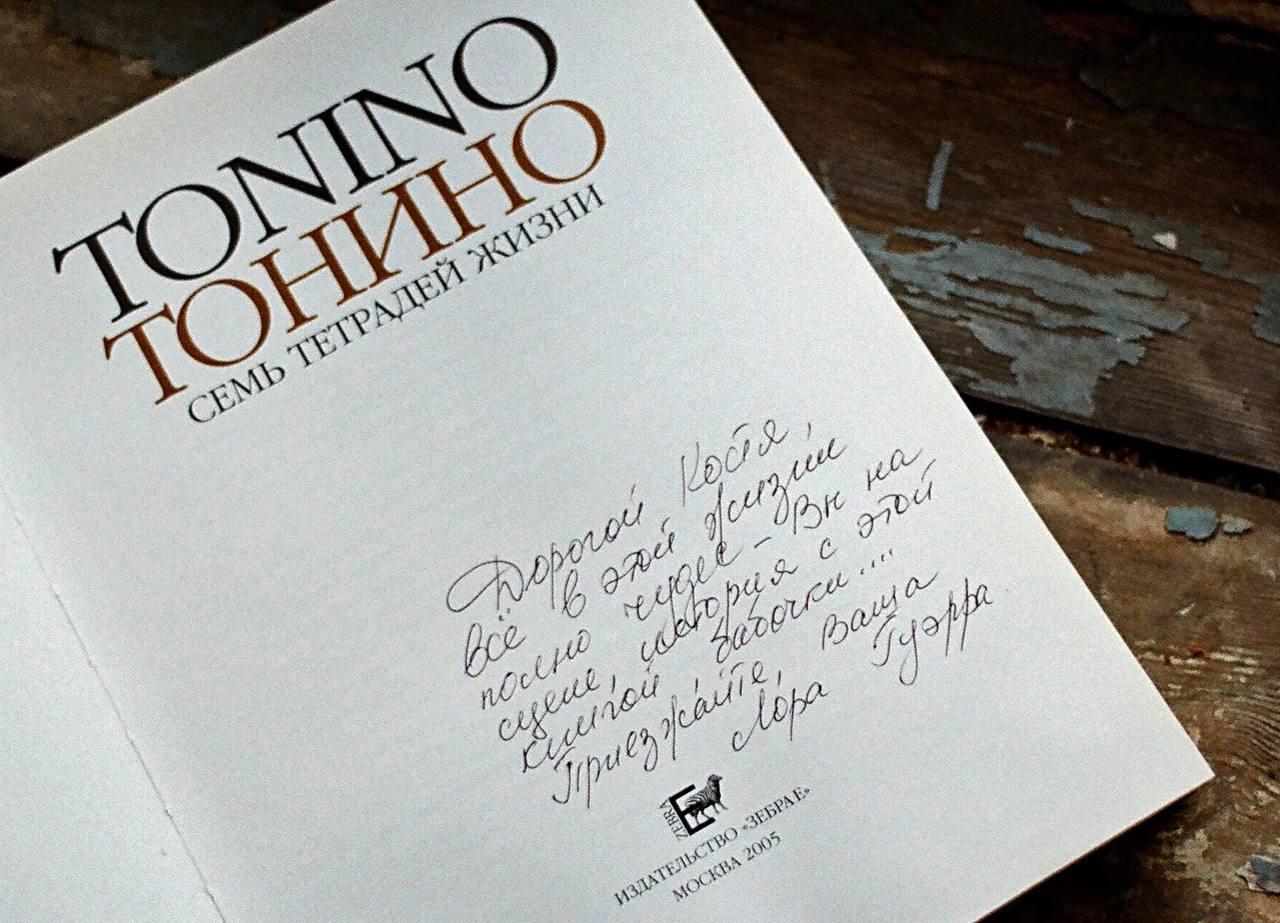 TONINO
ТОНИНО
СЕМЬ ТЕТРАДЕЙ ЖИЗНИ
Дорогой Костя,
всё в этой жизни
полно чудес - Вы на
сцене, история с этой
книгой бабочки....
Приезжайте, Ваша
Лора Гуэрра
ZEBRA E
ИЗДАТЕЛЬСТВО «ЗЕБРА Е»
МОСКВА 2005